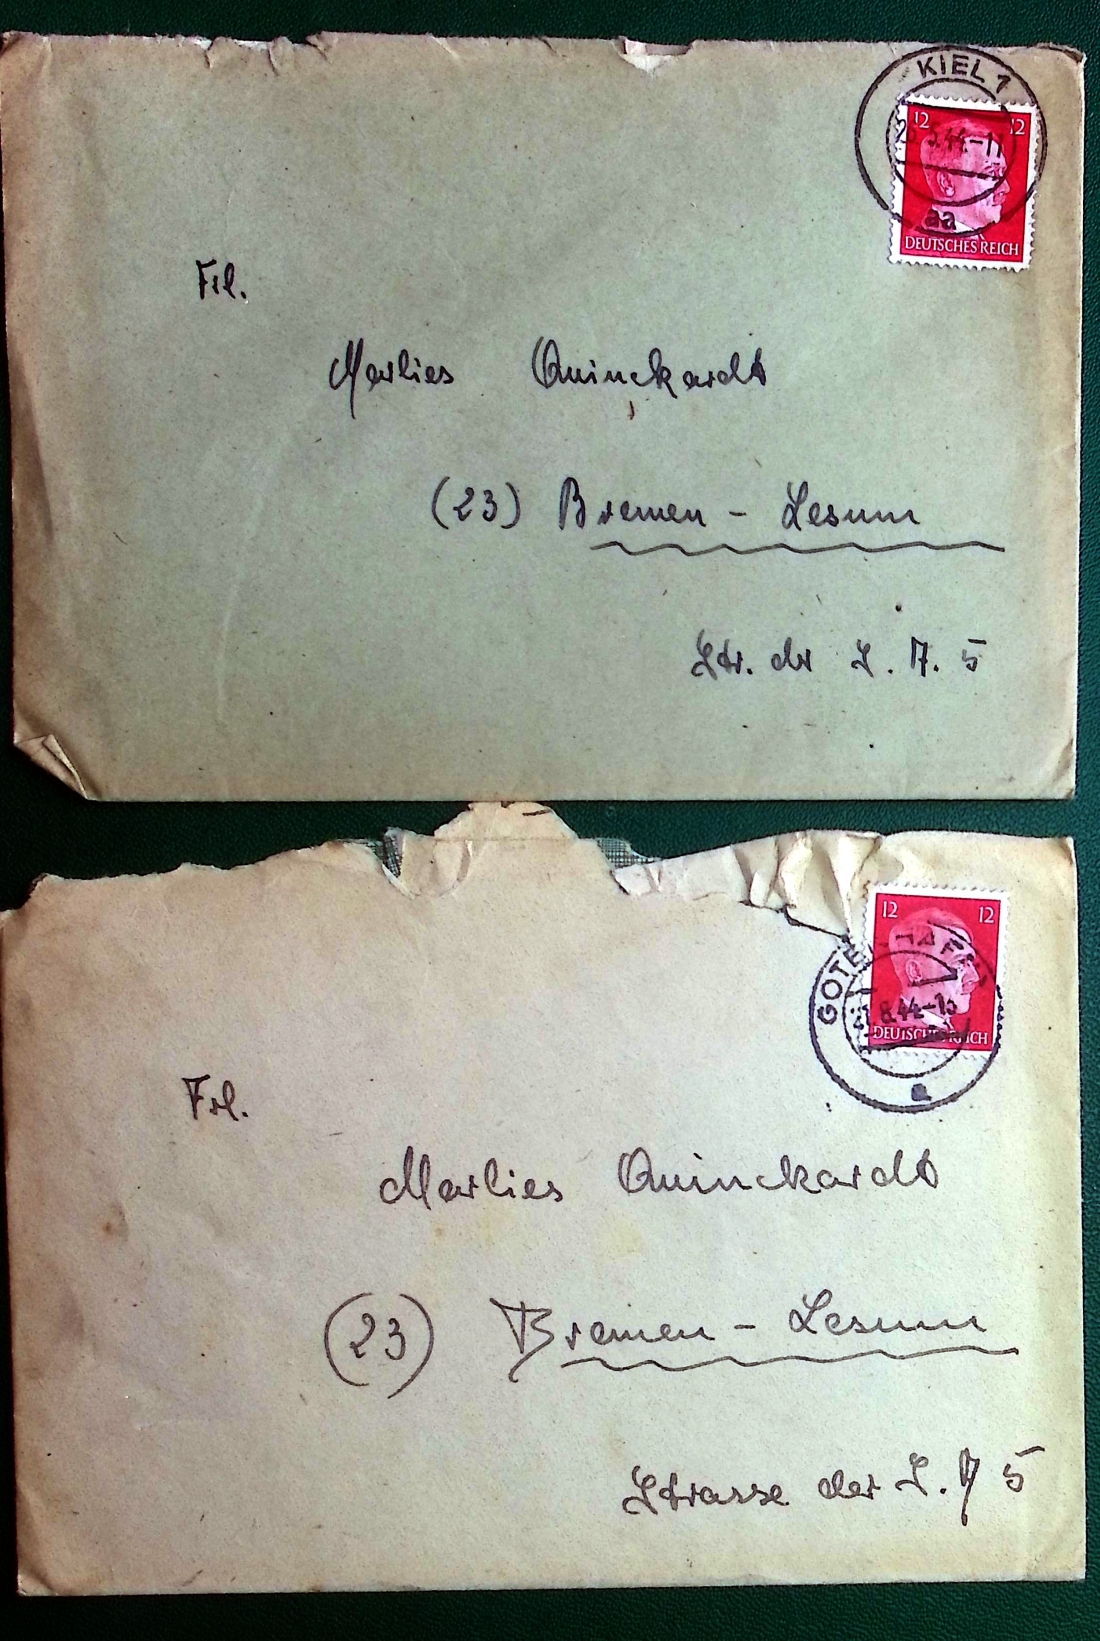 KIEL 1
12 12
.44-11
aa
DEUTSCHES REICH
Frl.
Marlies Quinckardt
(23) Bremen - Lesum
Str. der S. A. 5
12 12
GOTENHAFEN
8.44-15
DEUTSCHES REICH
a
Frl.
Marlies Quinckardt
(23) Bremen - Lesum
Strasse der S. A 5